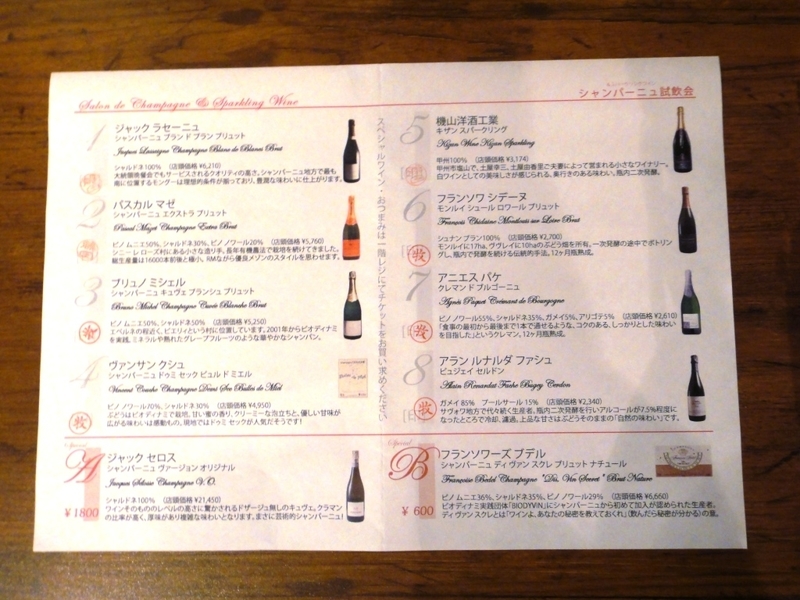 Salon de Champagne & Sparkling Wine
シャンパーニュ試飲会
1
ジャック ラセーニュ
シャンパーニュ ブラン ド ブラン ブリュット
Jacques Lassaigne Champagne Blanc de Blancs Brut
シャルドネ100% （店頭価格 ¥6,210）
大統領晩餐会でもサービスされるクオリティの高さ。シャンパーニュ地方で最も
南に位置するモングーは理想的条件が揃っており、豊潤な味わいに仕上がります。
2
パスカル マゼ
シャンパーニュ エクストラ ブリュット
Pascal Mazet Champagne Extra Brut
ピノ ムニエ50%、シャルドネ30%、ピノ ノワール20% （店頭価格 ¥5,760）
シニー レ ローズ村にある小さな造り手。長年有機農法で栽培を続けてきました。
総生産量は16000本前後と極小。RMながら優良メゾンのスタイルを思わせます。
3
ブリュノ ミシェル
シャンパーニュ キュヴェ ブランシュ ブリュット
Bruno Michel Champagne Cuvée Blanche Brut
ピノ ムニエ50%、シャルドネ50% （店頭価格 ¥5,250）
エペルネの程近く、ピエリィという村に位置しています。2001年からビオディナミ
を実践。ミネラルや熟れたグレープフルーツのような華やかなシャンパン。
牧
4
ヴァンサン クシュ
シャンパーニュ ドゥミ セック ビュル ド ミエル
Vincent Couche Champagne Demi Sec Bulles de Miel
ピノ ノワール70%、シャルドネ30% （店頭価格 ¥4,950）
ぶどうはビオディナミで栽培。甘い蜜の香り、クリーミーな泡立ちと、優しい甘味が
広がる味わいは感動もの。現地ではドゥミ セックが人気だそうです！
牧
Special
A
ジャック セロス
シャンパーニュ ヴァージョン オリジナル
Jacques Selosse Champagne V.O.
¥1800
シャルドネ100% （店頭価格 ¥21,450）
ワインそのもののレベルの高さに驚かされるドザージュ無しのキュヴェ。クラマン
の比率が高く、厚味があり複雑な味わいとなります。まさに芸術的シャンパーニュ！
スペシャルワイン・おつまみは一階レジにてチケットをお買い求めください
5
機山洋酒工業
キザン スパークリング
Kizan Wine Kizan Sparkling
甲州100% （店頭価格 ¥3,174）
甲州市塩山で、土屋幸三、土屋由香里ご夫妻によって営まれる小さなワイナリー。
白ワインとしての美味しさが感じられる、奥行きのある味わい。瓶内二次発酵。
6
フランソワ シデーヌ
モンルイ シュール ロワール ブリュット
François Chidaine Montlouis sur Loire Brut
シュナン ブラン100% （店頭価格 ¥2,700）
モンルイに17ha、ヴヴレイに10haのぶどう畑を所有。一次発酵の途中でボトリン
グし、瓶内で発酵を続ける伝統的手法。12ヶ月瓶熟成。
牧
7
アニエス パケ
クレマン ド ブルゴーニュ
Agnès Paquet Crémant de Bourgogne
ピノ ノワール55%、シャルドネ35%、ガメイ5%、アリゴテ5% （店頭価格 ¥2,610）
「食事の最初から最後まで1本で通せるような、コクのある、しっかりとした味わい
を目指した」というクレマン。12ヶ月瓶熟成。
牧
8
アラン ルナルダ ファシュ
ビュジェイ セルドン
Alain Renardat Fache Bugey Cerdon
ガメイ 85% プールサール 15% （店頭価格 ¥2,340）
サヴォワ地方で代々続く生産者。瓶内二次発酵を行いアルコールが7.5%程度に
なったところで冷却、濾過。上品な甘さはぶどうそのままの「自然の味わい」です。
牧
Special
B
フランソワーズ ブデル
シャンパーニュ ディ ヴァン スクレ ブリュット ナチュール
Françoise Bedel Champagne "Dis, Vin Secret" Brut Nature
¥600
ピノ ムニエ36%、シャルドネ35%、ピノ ノワール29% （店頭価格 ¥6,660）
ビオディナミ実践団体「BIODYVIN」にシャンパーニュから初めて加入が認められた生産者。
ディ ヴァン スクレとは「ワインよ、あなたの秘密を教えておくれ」（飲んだら秘密が分かる）の意。